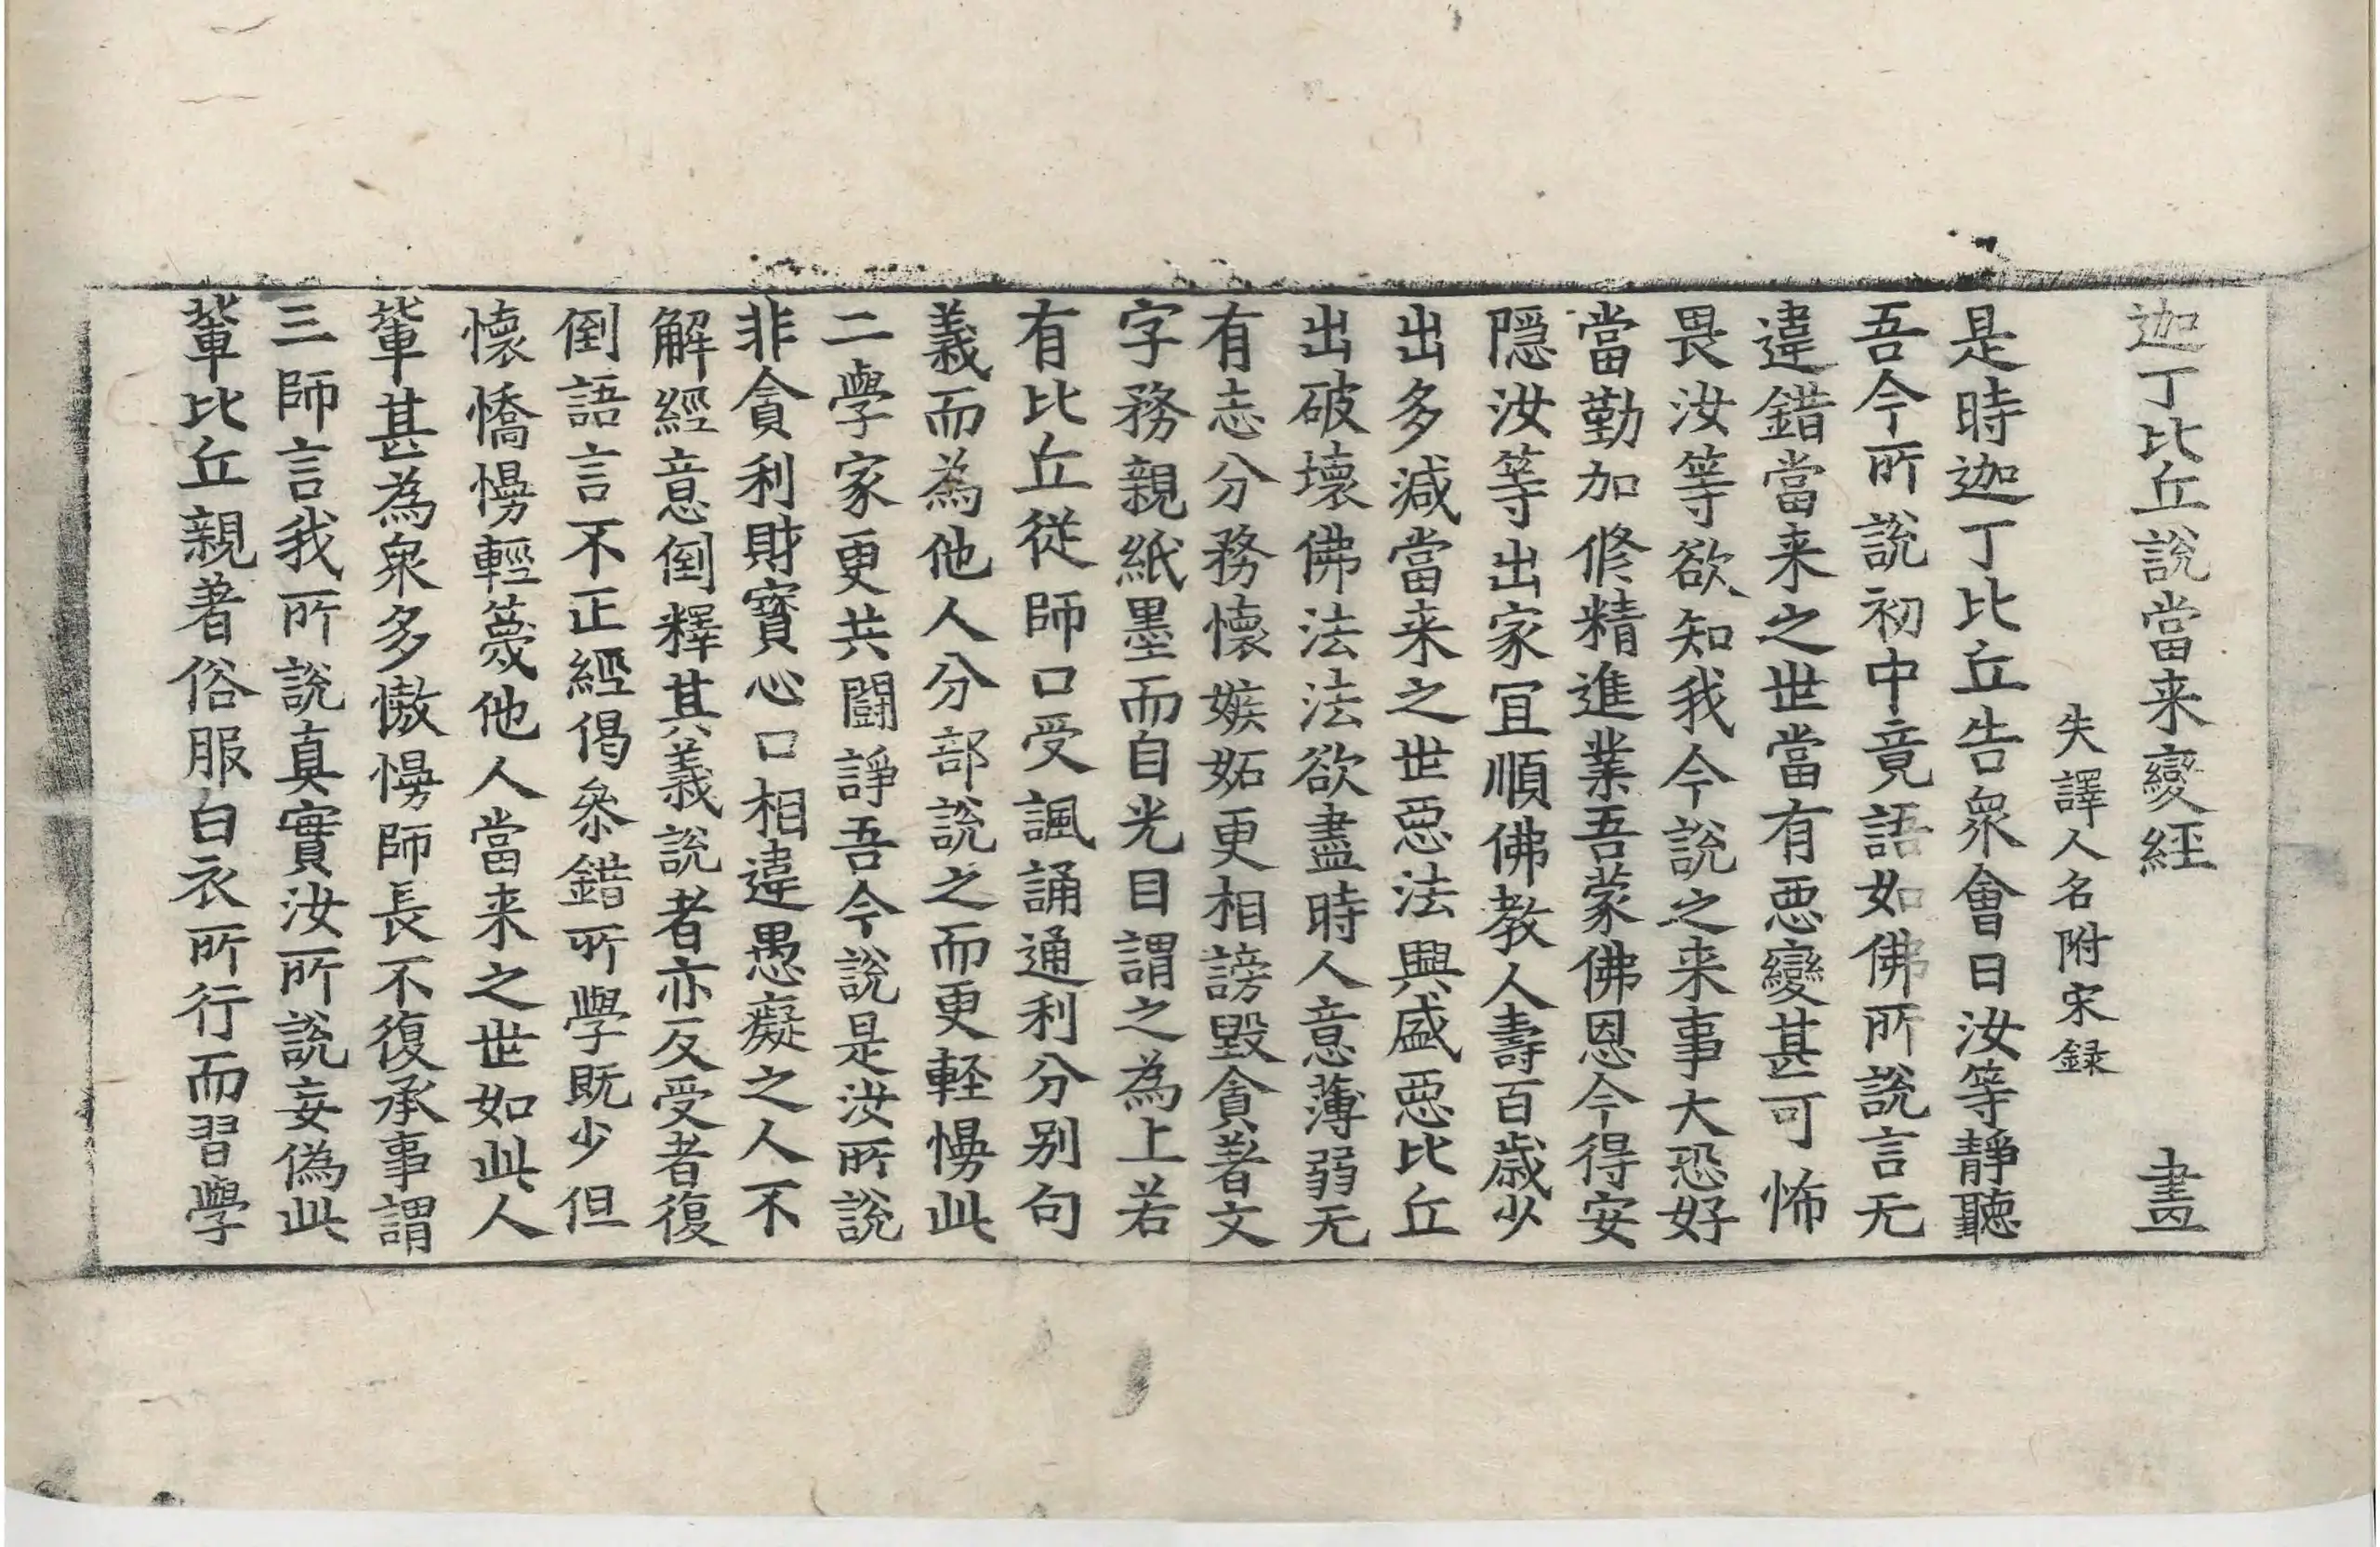 迦丁比丘說當来變経 畫
失譯人名附宋録
是時迦丁比丘告衆會曰汝等靜聽
吾今所說初中竟語如佛所說言无
違錯當来之世當有惡變甚可怖
畏汝等欲知我今說之来事大恐好
當勤加修精進業吾蒙佛恩今得安
隠汝等出家冝順佛教人壽百歲少
出多減當来之世惡法興盛惡比丘
出破壞佛法法欲盡時人意薄弱无
有志分務懷嫉妬更相謗毀貪著文
字務親紙墨而自光目謂之為上若
有比丘從師口受諷誦通利分別句
義而為他人分部說之而更軽慢此
二學家更共鬪諍吾今說是汝所說
非貪利財寳心口相違愚癡之人不
解經意倒釋其義說者亦反受者復
倒語言不正經偈叅錯所學既少但
懷憍慢輕蔑他人當来之世如此人
輩甚為衆多憿慢師長不復承事謂
三師言我所說真實汝所說妄偽此
輩比丘親著俗服白衣所行而習學